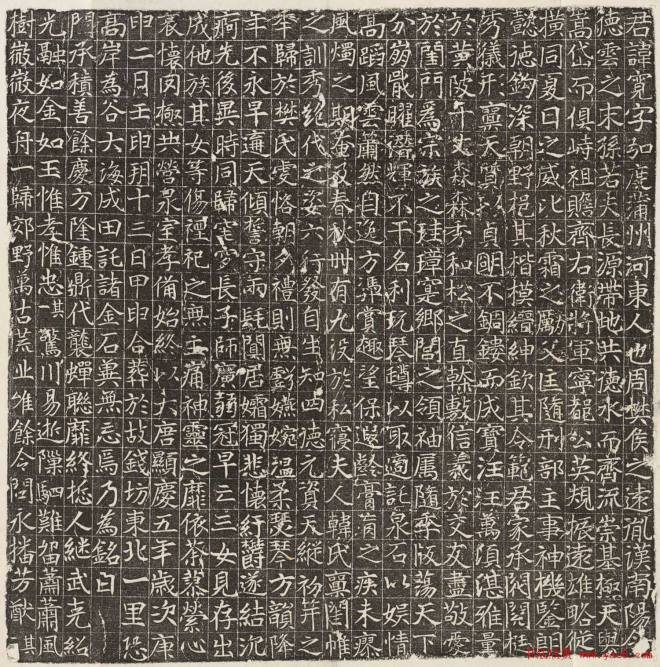 君諱寬字弘度蒲州河東人也周樊侯之遠胤漢南陽令
德雲之末孫若夫長源帶地共德水而齊流崇基極天與
嵩岱而俱峙祖贍齊右衛將軍寧都公英規振遠雄略
橫同夏日之威比秋霜之厲父匡隨刑部主事神機鑒朗
懿德鈎深朝野挹其楷模縉紳欽其令範君家承閥閱
秀儀形稟天算以貞明不錮鏤而成寶汪汪萬頃湛雅量
於黃陂千丈森森秀和松之直榦敷信義於交友盡敬愛
於閨門為宗族之珪璋寔鄉閭之領袖属隨季版蕩天下
分崩戢曜潛輝不干名利玩琴罇以取適託泉石以娛情
高蹈風雲蕭然自逸方冀賞趣望保遐齡膏肓之疾未瘳
風燭之期奄及春秋卌有九没於私寢夫人韓氏稟閨帷
之訓秀絕代之姿六行發自生知四德元資天縱初笄之
年歸於樊氏虔恪朝夕禮則無虧嬿婉溫柔瑟琴方韻降
年不永早遘天傾誓守兩髦閑居孀獨悲懷紆欝遂結沉
痾先後異時同歸窀穸長子師 弱冠早亡三女見存出
成他族其女等傷禋祀之無主痛神靈之靡依荼蓼縈心
哀懷罔極共營泉室孝備始終以大唐顯慶五年歲次庚
申二月壬申玥十三日甲申合葬於故錢坊東北一里恐
高岸為谷大海成田託諸金石冀無忘焉乃為銘曰
門承積善餘慶方隆鍾鼎代襲蟬聯靡終悊人繼武克紹
光融如金如玉惟孝惟忠其一驚川易逝隟駟難留蕭蕭風
樹巖巖夜舟一歸郊野萬古荒丘唯餘令問永播芳猷其
书法欣赏
www.yac8.com